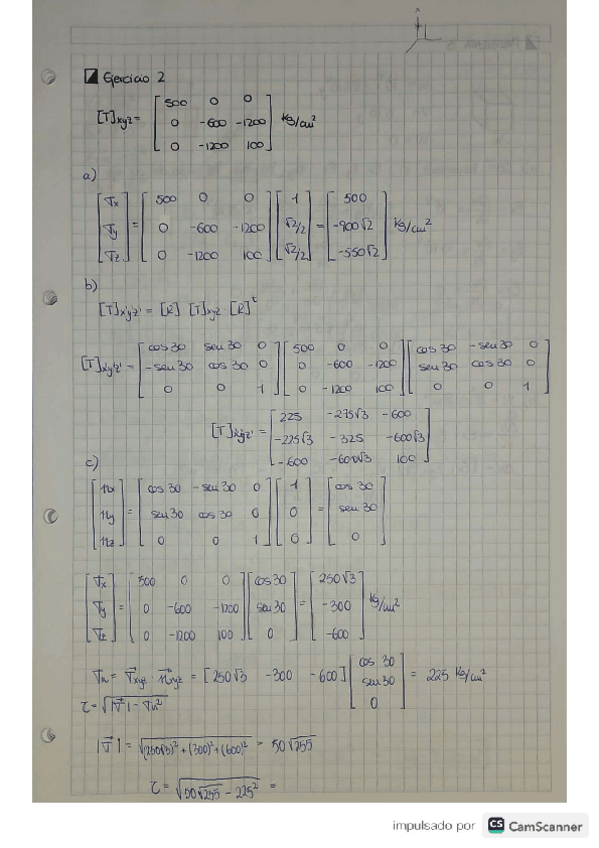 Ejercicio 2
[T]xyz = [500 0 0; 0 -600 -1200; 0 -1200 100] kg/cm²
a)
[σx; σy; σz] = [500 0 0; 0 -600 -1200; 0 -1200 100] [1; √2/2; √2/2] = [500; -900√2; -550√2] kg/cm²
b)
[T]x'y'z' = [R] [T]xyz [R]ᵗ
[T]x'y'z' = [cos 30 sen 30 0; -sen 30 cos 30 0; 0 0 1] [500 0 0; 0 -600 -1200; 0 -1200 100] [cos 30 -sen 30 0; sen 30 cos 30 0; 0 0 1]
[T]x'y'z' = [225 -275√3 -600; -225√3 -325 -600√3; -600 -600√3 100]
c)
[nx; ny; nz] = [cos 30 -sen 30 0; sen 30 cos 30 0; 0 0 1] [1; 0; 0] = [cos 30; sen 30; 0]
[σx; σy; σz] = [500 0 0; 0 -600 -1200; 0 -1200 100] [cos 30; sen 30; 0] = [250√3; -300; -600] kg/cm²
σn = σ⃗xyz · n⃗xyz = [250√3 -300 -600] [cos 30; sen 30; 0] = 225 kg/cm²
τ = √(|σ⃗| - σn²)
|σ⃗| = √((250√3)² + (300)² + (600)²) = 50√255
τ = √(50√255 - 225²) =
impulsado por CS CamScanner